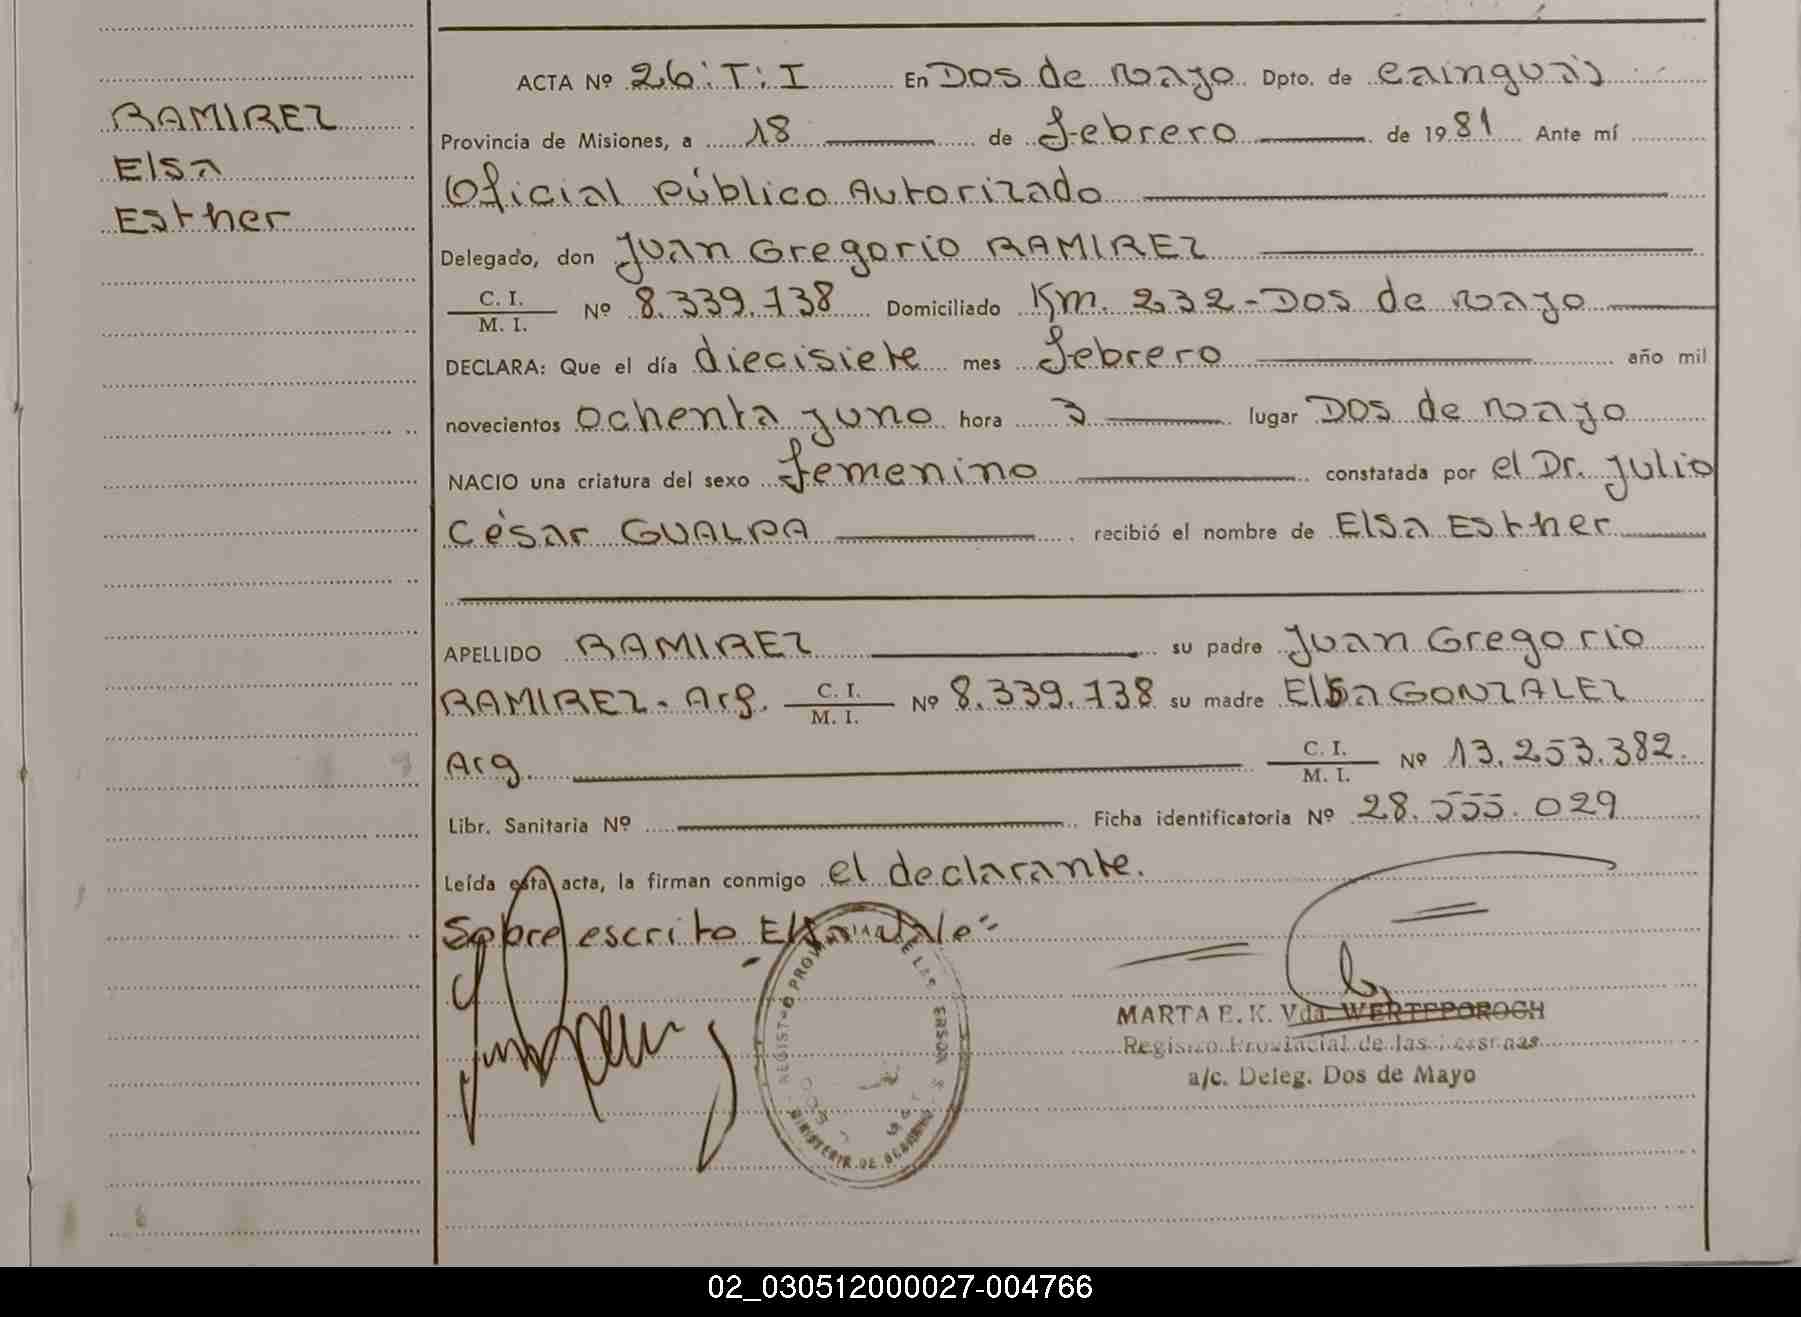 RAMIREZ
Elsa
Esther
ACTA Nº 26:T:I En Dos de Mayo Dpto. de Cainguás
Provincia de Misiones, a 18 de febrero de 1981 Ante mí
Oficial Público Autorizado
Delegado, don Juan Gregorio RAMIREZ
C. I.
M. I. Nº 8.339.738 Domiciliado Km. 232-Dos de Mayo
DECLARA: Que el día diecisiete mes febrero año mil
novecientos ochenta y uno hora 3 lugar Dos de Mayo
NACIO una criatura del sexo femenino constatada por el Dr. Julio
César GUALPA recibió el nombre de Elsa Esther
APELLIDO RAMIREZ su padre Juan Gregorio
RAMIREZ - Arg. C. I.
M. I. Nº 8.339.738 su madre Elsa GONZALEZ
Arg. C. I.
M. I. Nº 13.253.382.
Libr. Sanitaria Nº Ficha identificatoria Nº 28.555.029
Leída esta acta, la firman conmigo el declarante.
Sobre escrito Elsa vale"
MARTA E. K. Vda. WERTEPOROCH
Registro Provincial de las Personas
a/c. Deleg. Dos de Mayo
02_030512000027-004766